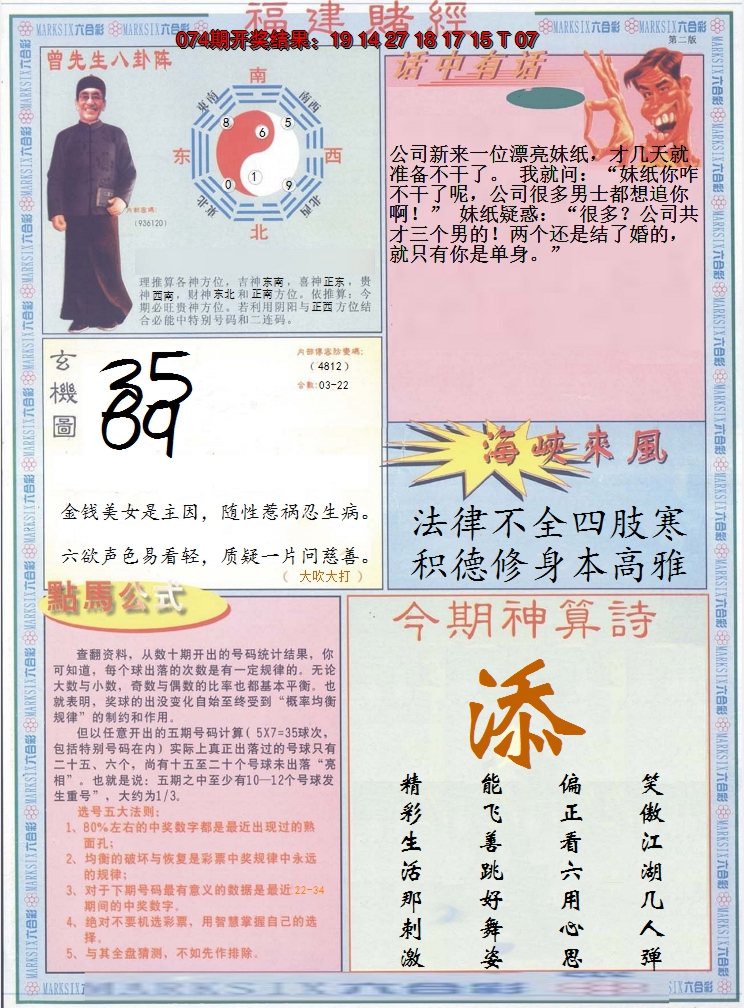 福建賭經
074期开奖结果：19 14 27 18 17 15 T 07
第二版
MARKSIX六合彩
曾先生八卦阵
南
东南
南西
8
5
6
东
西
1
0
9
东北
北西
北
内部密碼：
（936120）
理推算各神方位，吉神东南，喜神正东，贵
神西南，财神东北和正南方位。依推算：今
期必旺贵神方位。若利用阴阳与正西方位结
合必能中特别号码和二连码。
话中有话
公司新来一位漂亮妹纸，才几天就
准备不干了。 我就问：“妹纸你咋
不干了呢，公司很多男士都想追你
啊！” 妹纸疑惑：“很多？公司共
才三个男的！两个还是结了婚的，
就只有你是单身。”
玄機圖
35
69
内部傳密防變碼：
（4812）
合數：03-22
金钱美女是主因，随性惹祸忍生病。
六欲声色易看轻，质疑一片问慈善。
（ 大吹大打 ）
海峽來風
法律不全四肢寒
积德修身本高雅
點馬公式
查翻资料，从数十期开出的号码统计结果，你
可知道，每个球出落的次数是有一定规律的。无论
大数与小数，奇数与偶数的比率也都基本平衡。也
就表明，奖球的出没变化自始至终受到“概率均衡
规律”的制约和作用。
但以任意开出的五期号码计算（5X7=35球次，
包括特别号码在内）实际上真正出落过的号球只有
二十五、六个，尚有十五至二十个号球未出落“亮
相”。也就是说：五期之中至少有10—12个号球发
生重号”，大约为1/3。
选号五大法则：
1、80%左右的中奖数字都是最近出现过的熟
面孔；
2、均衡的破坏与恢复是彩票中奖规律中永远
的规律；
3、对于下期号码最有意义的数据是最近22-34
期间的中奖数字。
4、绝对不要机选彩票，用智慧掌握自己的选
择。
5、与其全盘猜测，不如先作排除。
今期神算詩
添
笑傲江湖几人弹
偏正看六用心思
能飞善跳好舞姿
精彩生活那刺激